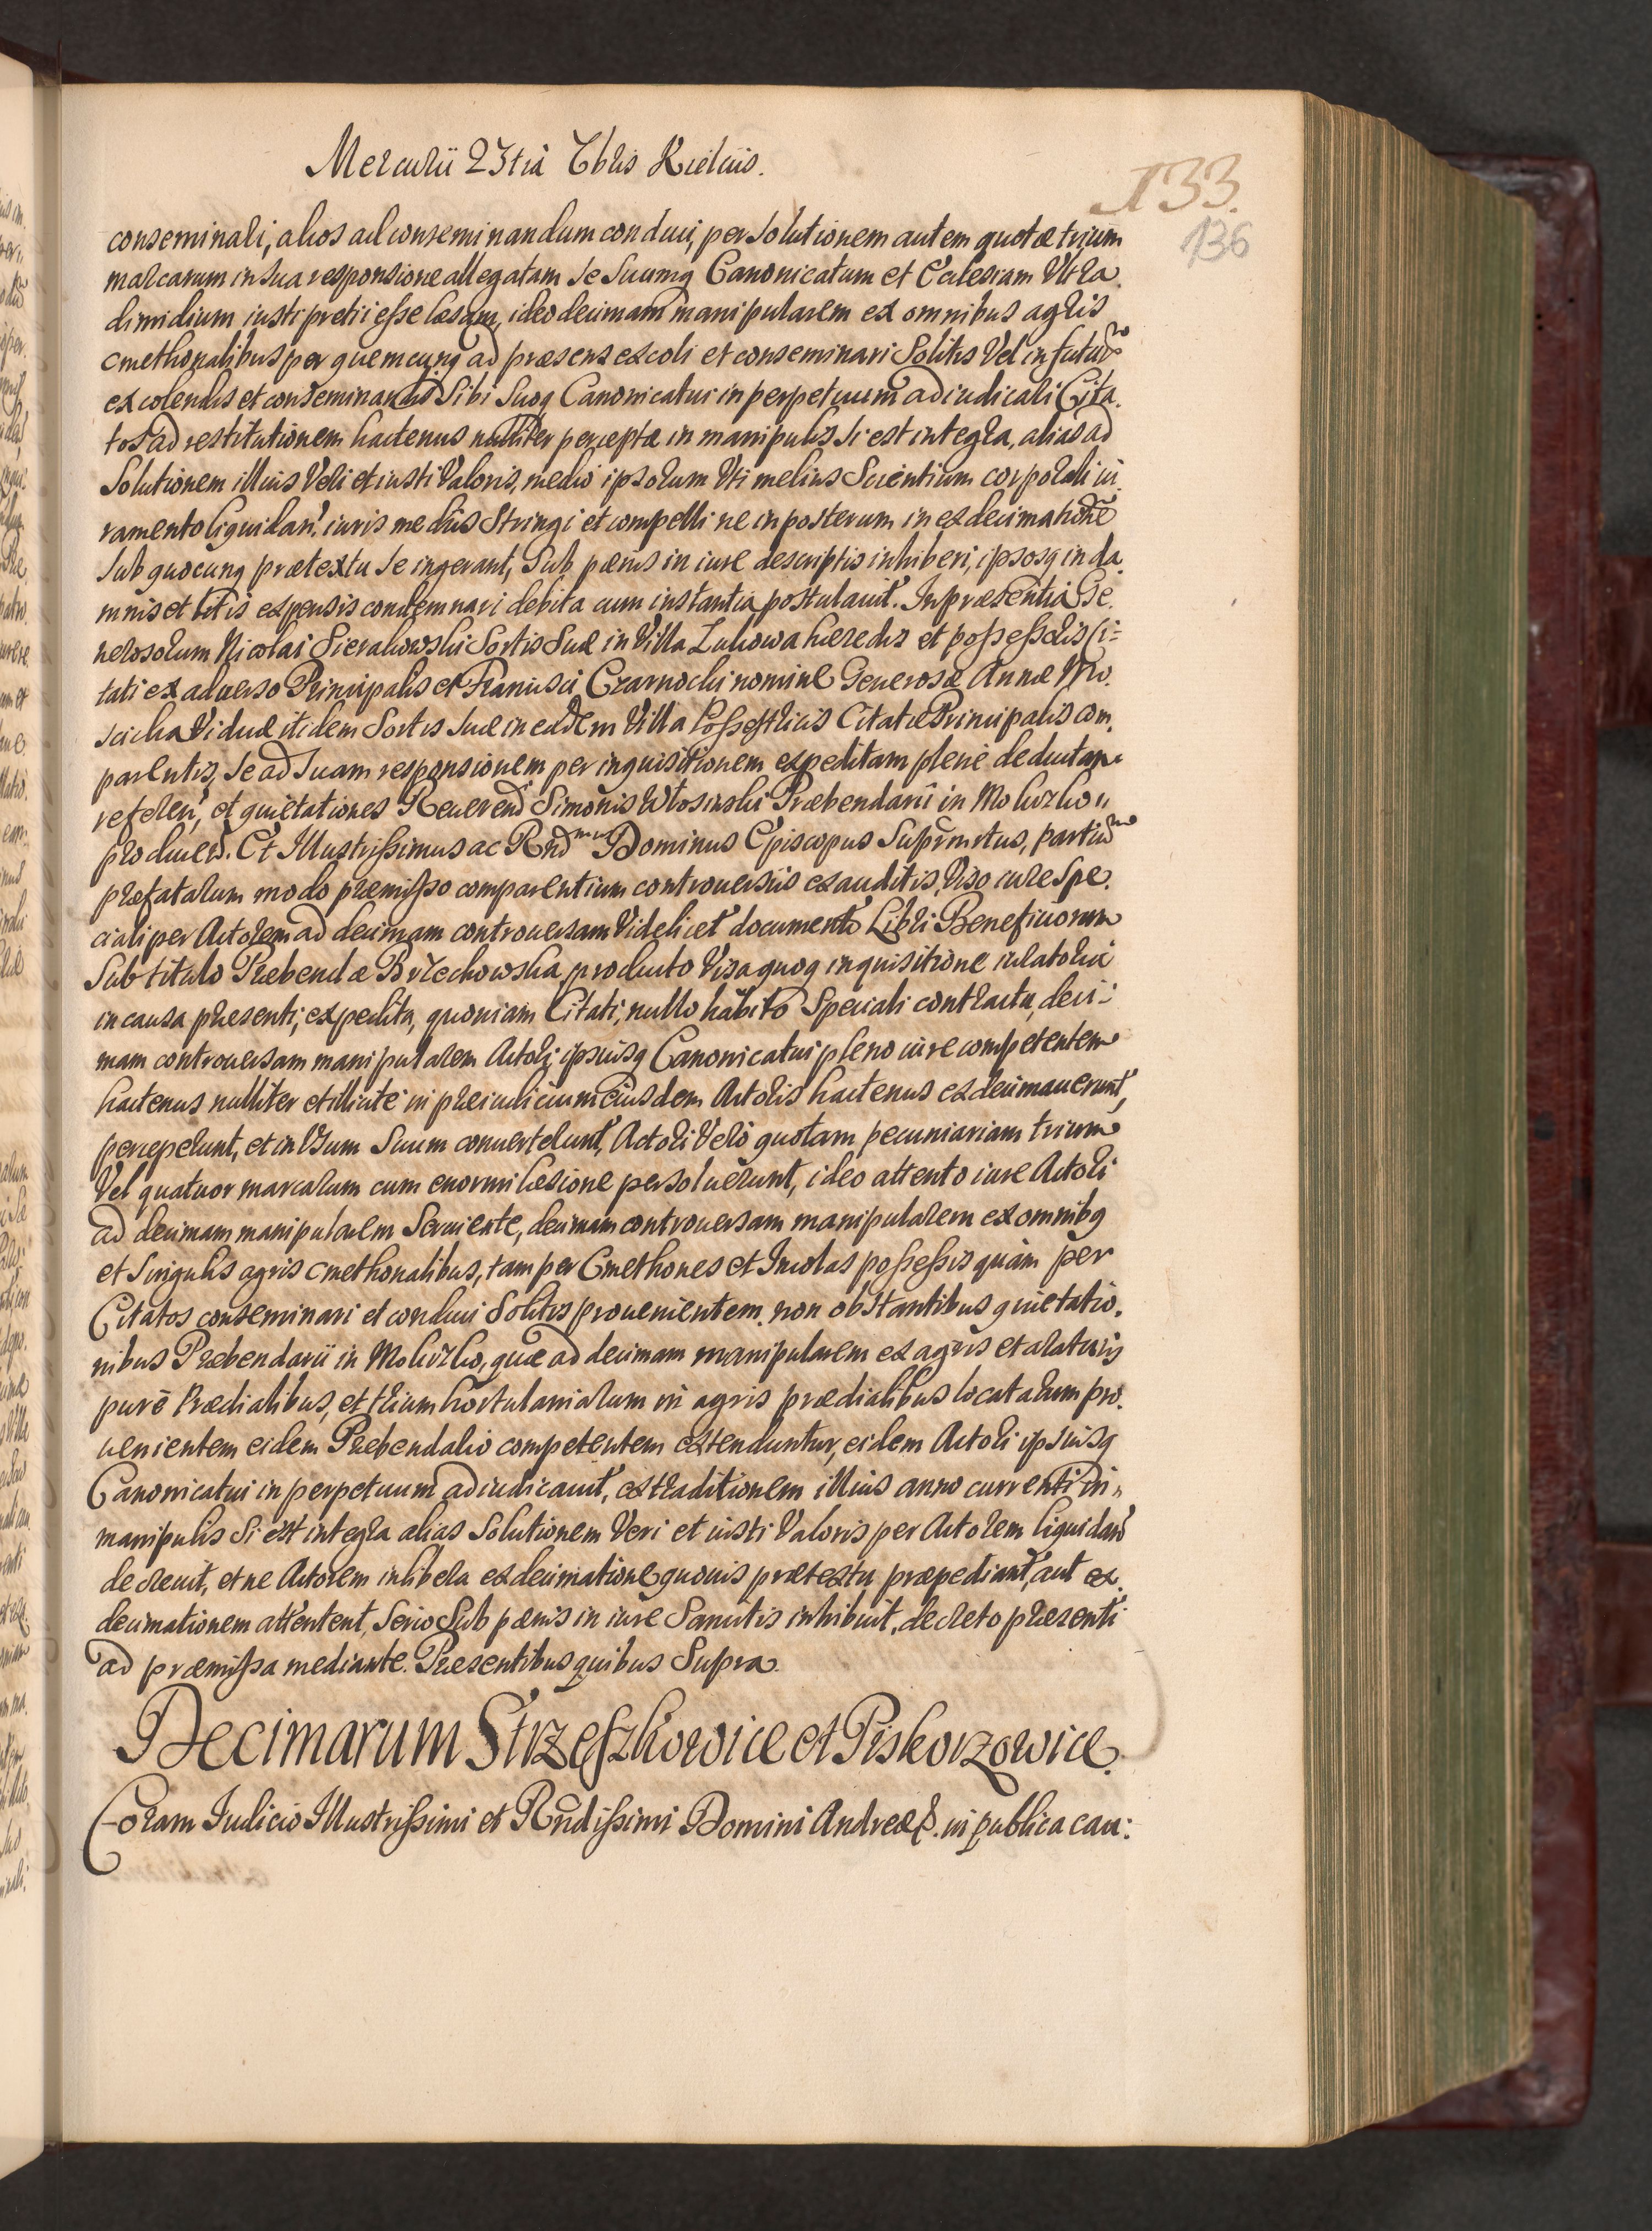 Mercurii 23tia 7bris Kielciis.
133.
136
conseminari, alios ad conseminandum conduci, persolutionem autem quotæ trium
marcarum in sua responsione allegatam se suumq Canonicatum et Ecclesiam Vltra
dimidium iusti pretii esse læsam, ideo decimam manipularem ex omnibus agris
cmethonalibus per quemcunq ad præsens excoli et conseminari Solitis Vel in futuro
excolendis et conseminandis Sibi Suoq Canonicatui in perpetuum adiudicari Cita.
tos ad restitutionem hactenus nulliter perceptæ in manipulis si est integra, alias ad
Solutionem illius Veri et iusti Valoris, medio ipsorum Vti melius Scientium corporali iu.
ramento liquidan. iuris mediis Stringi et compelli ne in posterum in exdecimatione
Sub quocunq prætextu se ingerant, Sub pænis in iure descriptis inhiberi, ipsosq in da.
mnis et litis expensis condemnari debita cum instantia postulauit. In præsentia Ge.
nerosorum Nicolai Sierakowski Sortis Suæ in Villa Lukowa hæredis et possessoris Ci=
tati ex aduerso Principalis et Francisci Czarnocki nomine Generosæ Annæ Mo.
scicka Viduæ itidem Sortis suæ in eadem Villa Possestricis Citatæ Principalis com.
parentis, se ad suam responsionem per inquisitionem expeditam plene deductam
referen, et quietationes Reuerend Simonis Wlosinski Præbendarii in Mokrzko
producen. Et Illustrissimus ac Rnd mus Dominus Episcopus Suprmtus, partium
præfatarum modo præmisso comparentium controuersiis exauditis, Viso iure Spe.
ciali per Actorem ad decimam controuersam Videlicet documento Libri Beneficiorum
Sub titulo Præbendæ Brzechowska producto Visa quoq inquisitione iuratoria
in causa præsenti, expedita, quoniam Citati, nullo habito Speciali contractu, deci=
mam controuersam manipularem Actori, ipsiusq Canonicatui pleno iure competentem
hactenus nulliter et illicite in præiudicium eiusdem Actoris hactenus exdecimauerunt,
perceperunt, et in Vsum Suum conuerterunt, Actori Vero quotam pecuniariam trium
Vel quatuor marcarum cum enormi læsione persoluerunt, ideo attento iure Actori
ad decimam manipularem Seruiente, decimam controuersam manipularem ex omnibq
et Singulis agris cmethonalibus, tam per Cmethones et Incolas possessis quàm per
Citatos conseminari et conduci Solitis prouenientem non obstantibus quietatio.
nibus Præbendarii in Mokrzko, quæ ad decimam manipularem ex agris et araturis
purè Prædialibus, et trium hortulaniarum in agris prædialibus locatarum pro.
uenientem eidem Præbendario competentem extenduntur, eidem Actori ipsiusq
Canonicatui in perpetuum adiudicauit, extraditionem illius anno currenti in
manipulis Si est integra alias Solutionem Veri et iusti Valoris per Actorem liquidan
decreuit, et ne Actorem in libera exdecimatione quouis prætextu præpediant, aut ex.
decimationem attentent, Serio Sub pænis in iure Sancitis inhibuit, decreto præsenti
ad præmissa mediante. Præsentibus quibus Supra.
Decimarum Strzeszkowice et Piskorzowice.
Coram Iudicio Illustrissimi et Rndissimi Domini Andreæ &. in publica cau: